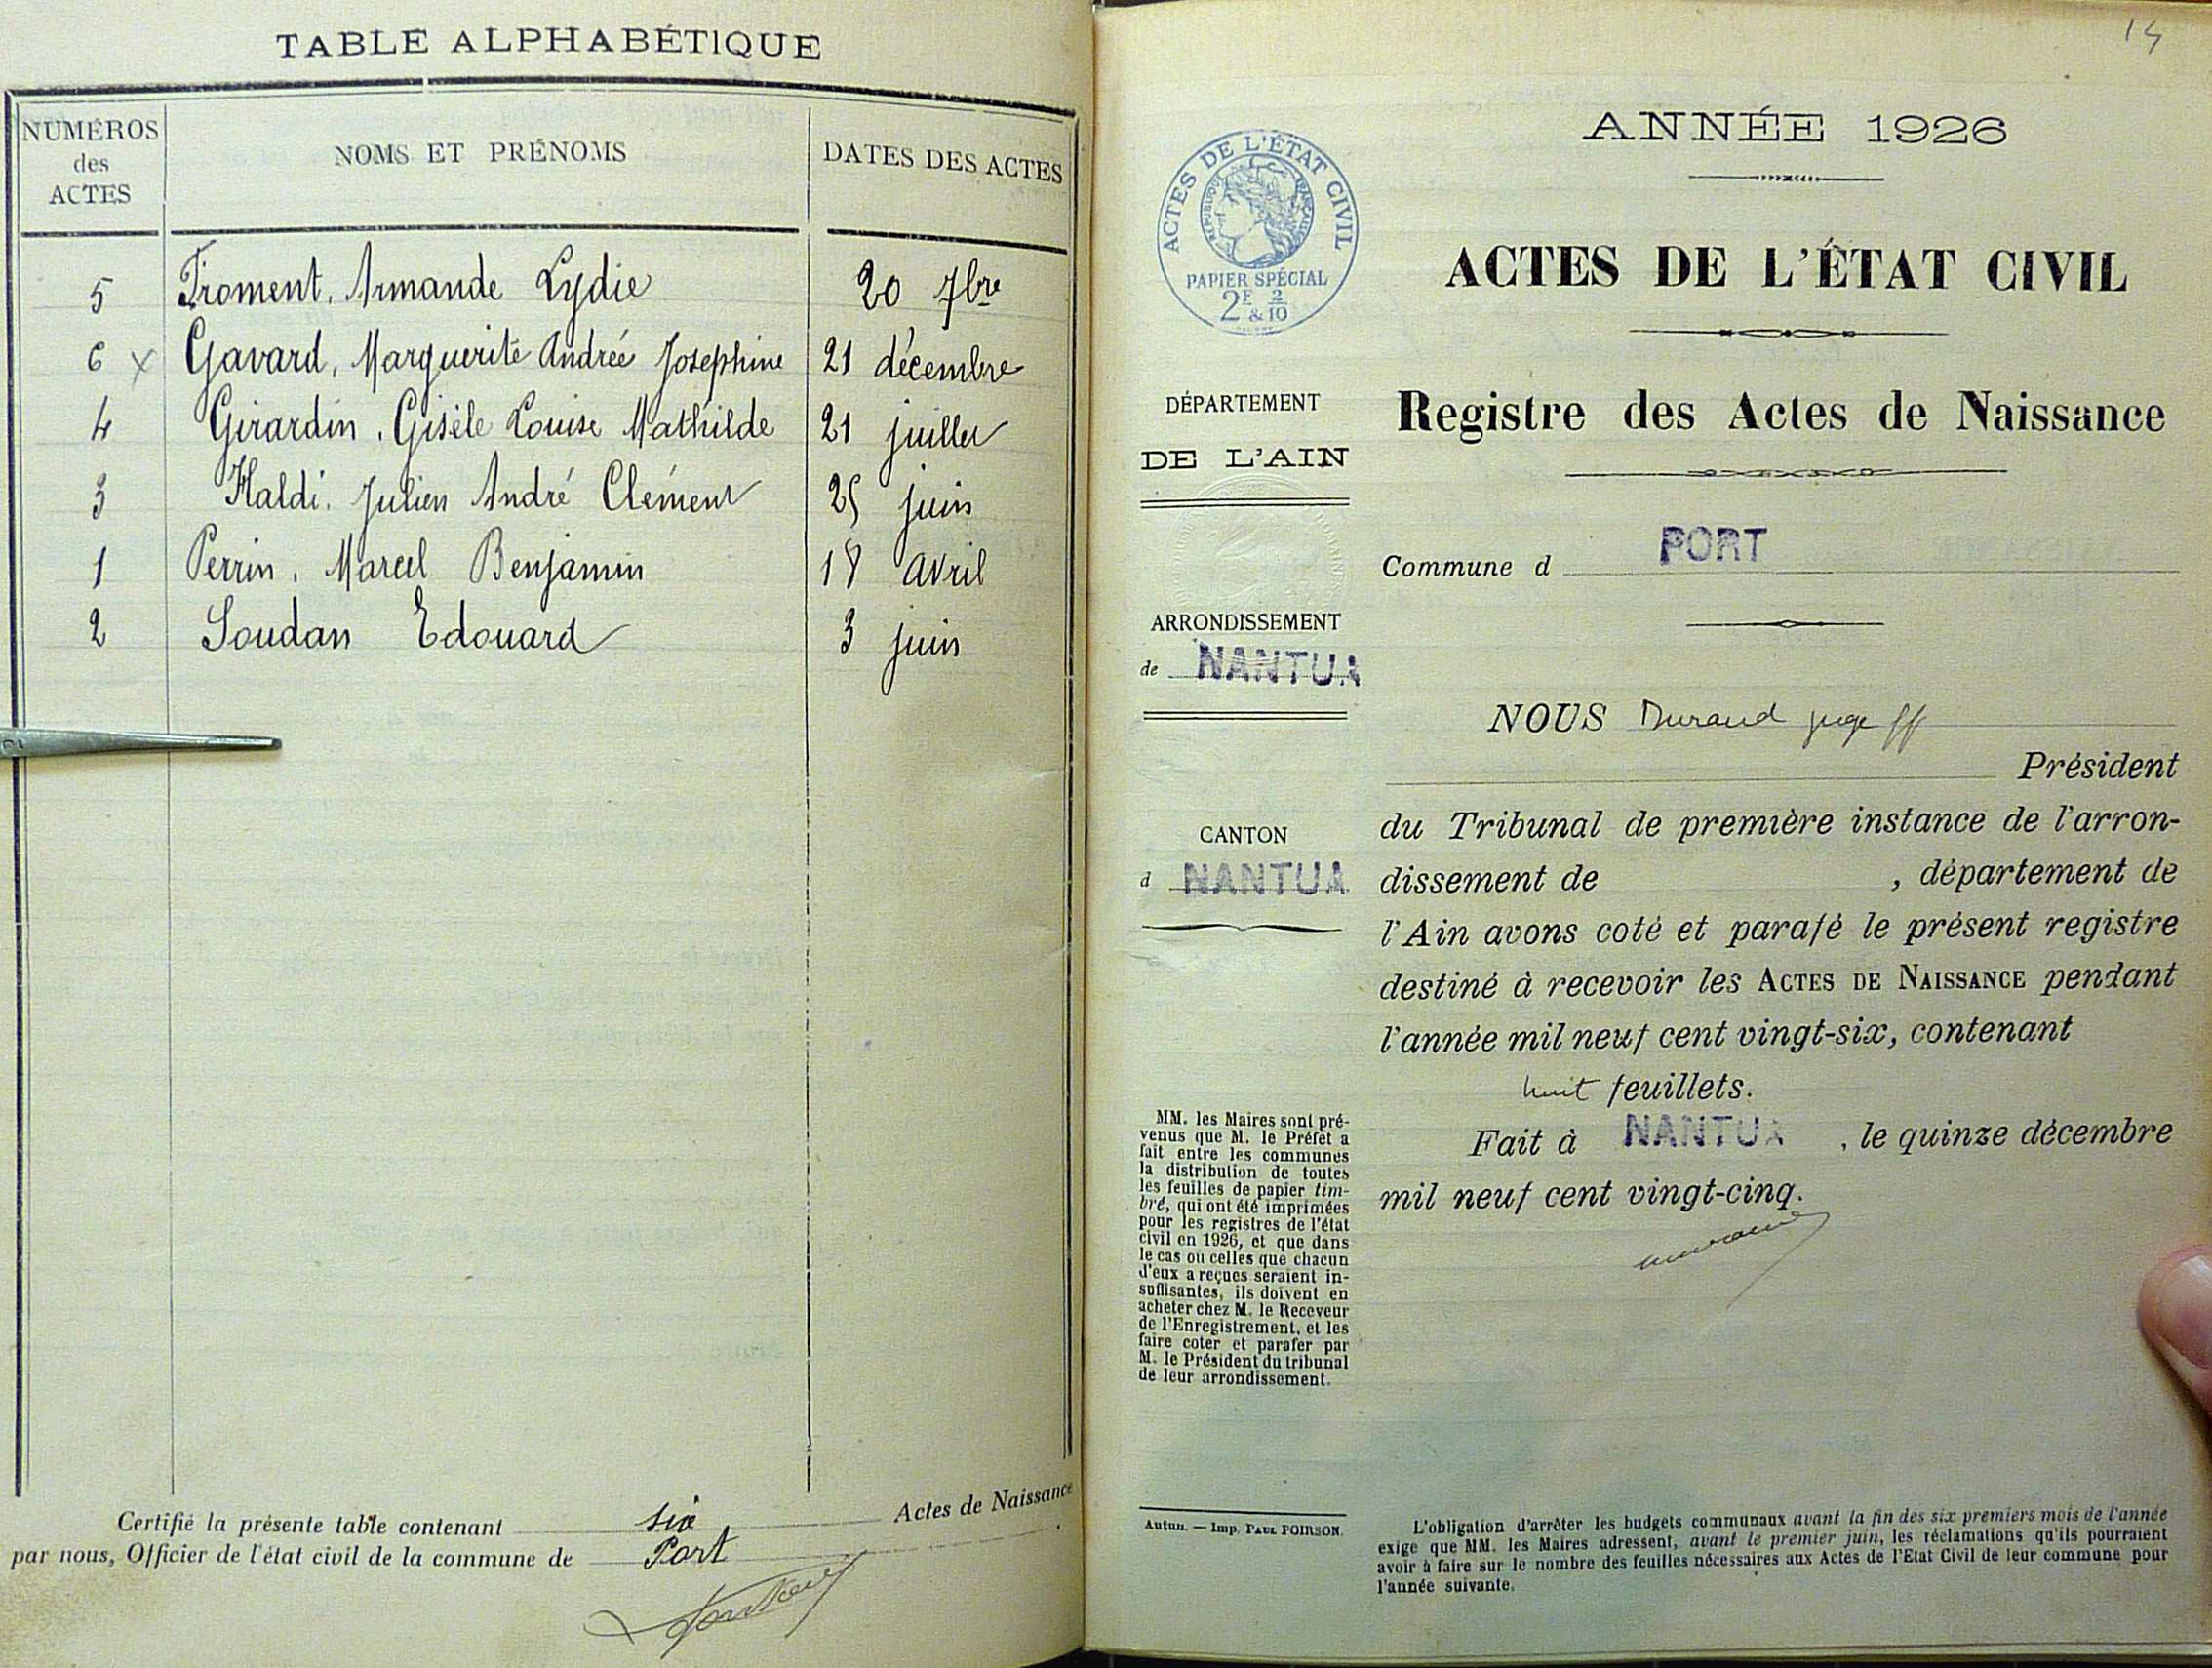 TABLE ALPHABÉTIQUE
NUMÉROS
des
ACTES
NOMS ET PRÉNOMS
DATES DES ACTES
5 Froment, Armande Lydie 20 7bre
6 x Gavard, Marguerite Andrée Josephine 21 décembre
4 Girardin, Gisèle Louise Mathilde 21 juillet
3 Haldi, Julien André Clément 25 juin
1 Perrin, Marcel Benjamin 18 avril
2 Soudan Edouard 3 juin
Certifié la présente table contenant six Actes de Naissance
par nous, Officier de l'état civil de la commune de Port.
ANNÉE 1926
ACTES DE L'ÉTAT CIVIL
RÉPUBLIQUE FRANÇAISE
PAPIER SPÉCIAL
2F & 2/10
ACTES DE L'ÉTAT CIVIL
Registre des Actes de Naissance
DÉPARTEMENT
DE L'AIN
Commune d PORT
ARRONDISSEMENT
de NANTUA
CANTON
d NANTUA
NOUS Durand juge ff
Président
du Tribunal de première instance de l'arron-
dissement de , département de
l'Ain avons coté et parafé le présent registre
destiné à recevoir les ACTES DE NAISSANCE pendant
l'année mil neuf cent vingt-six, contenant
huit feuillets.
Fait à NANTUA, le quinze décembre
mil neuf cent vingt-cinq.
MM. les Maires sont pré-
venus que M. le Préfet a
fait entre les communes
la distribution de toutes
les feuilles de papier tim-
bré, qui ont été imprimées
pour les registres de l'état
civil en 1926, et que dans
le cas où celles que chacun
d'eux a reçues seraient in-
suffisantes, ils doivent en
acheter chez M. le Receveur
de l'Enregistrement, et les
faire coter et parafer par
M. le Président du tribunal
de leur arrondissement.
Autun. — Imp. PAUL POIRSON.
L'obligation d'arrêter les budgets communaux avant la fin des six premiers mois de l'année
exige que MM. les Maires adressent, avant le premier juin, les réclamations qu'ils pourraient
avoir à faire sur le nombre des feuilles nécessaires aux Actes de l'Etat Civil de leur commune pour
l'année suivante.